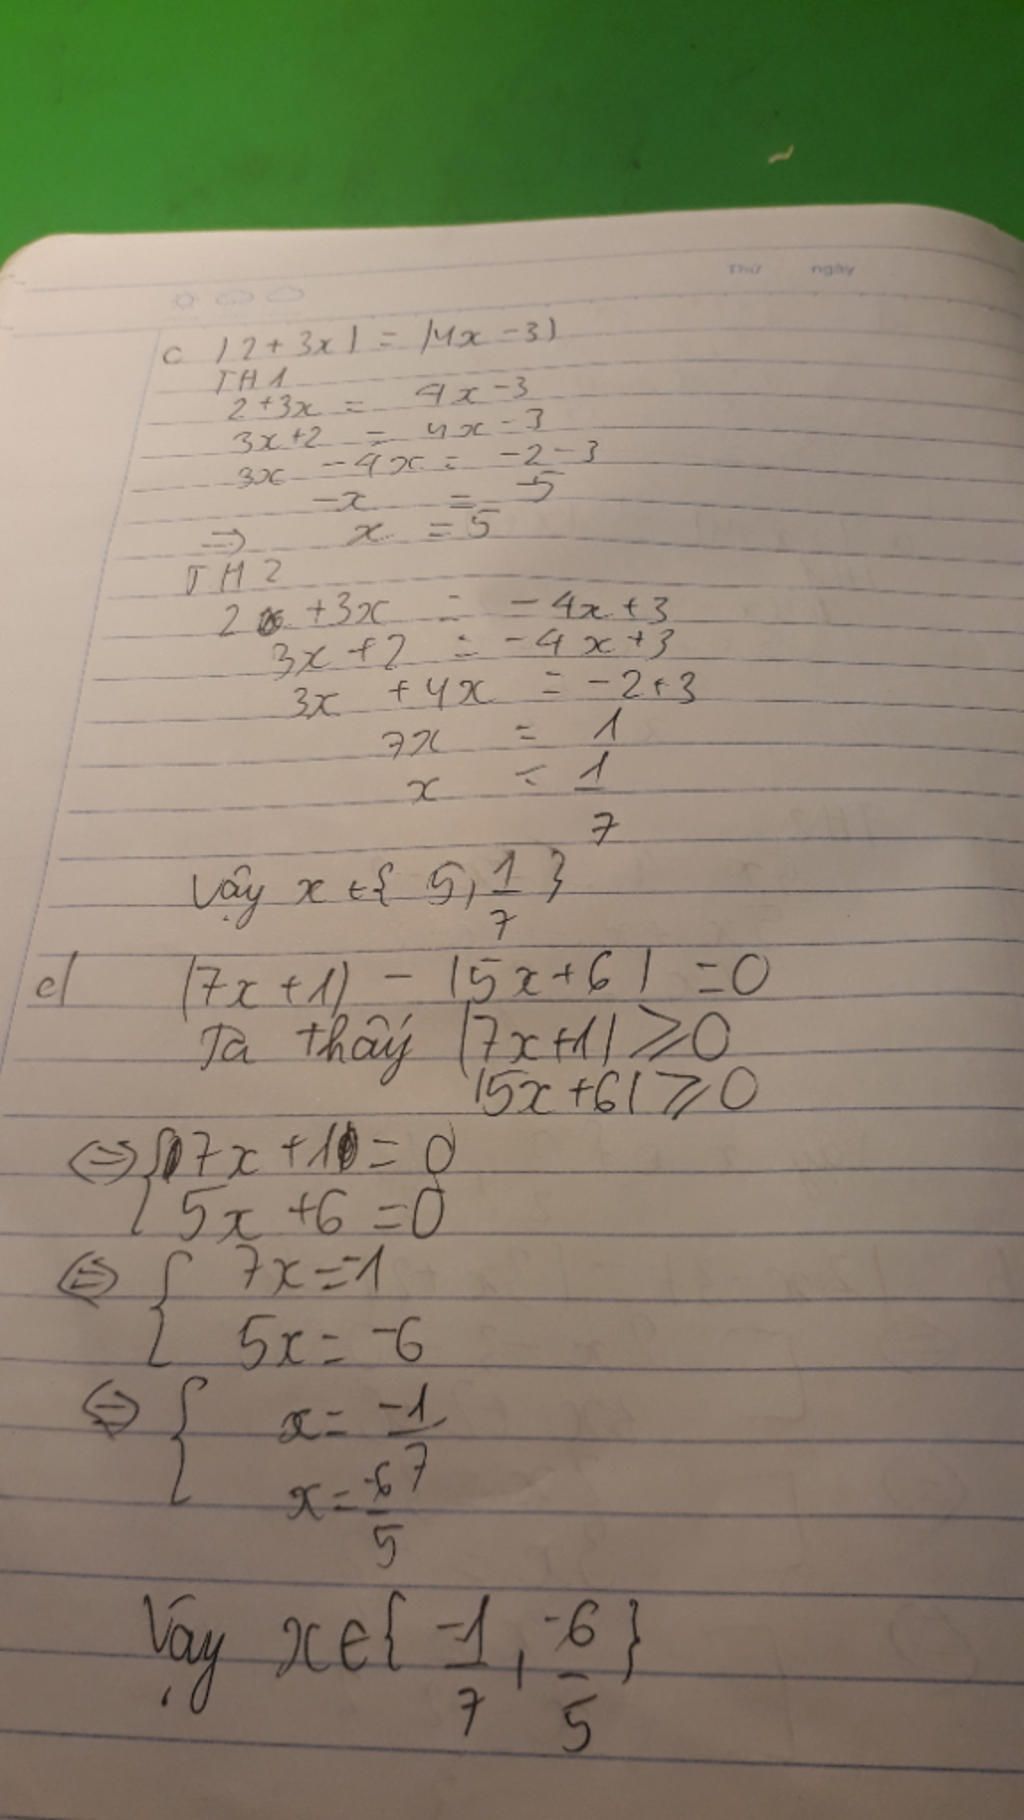 Thứ ngày
c |2+3x| = |4x-3|
TH1
2+3x = 4x-3
3x+2 = 4x-3
3x -4x = -2-3
-x = -5
=> x = 5
TH2
2 +3x = -4x+3
3x+2 = -4x+3
3x +4x = -2+3
7x = 1
x = 1/7
Vậy x ∈ { 5, 1/7 }
e/ |7x+1| - |5x+6| = 0
Ta thấy |7x+1| ⩾ 0
|5x+6| ⩾ 0
<=> { 7x+1 = 0
5x+6 = 0
<=> { 7x = -1
5x = -6
<=> { x = -1/7
x = -6/5
Vậy x ∈ { -1/7, -6/5 }